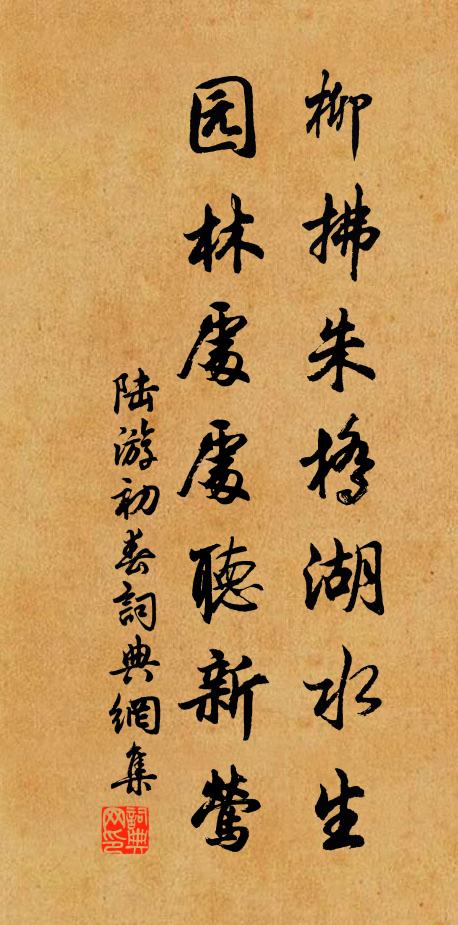 柳拂朱桥湖水生
园林處處聽新莺
陆游初春詞典網集
詞典网印